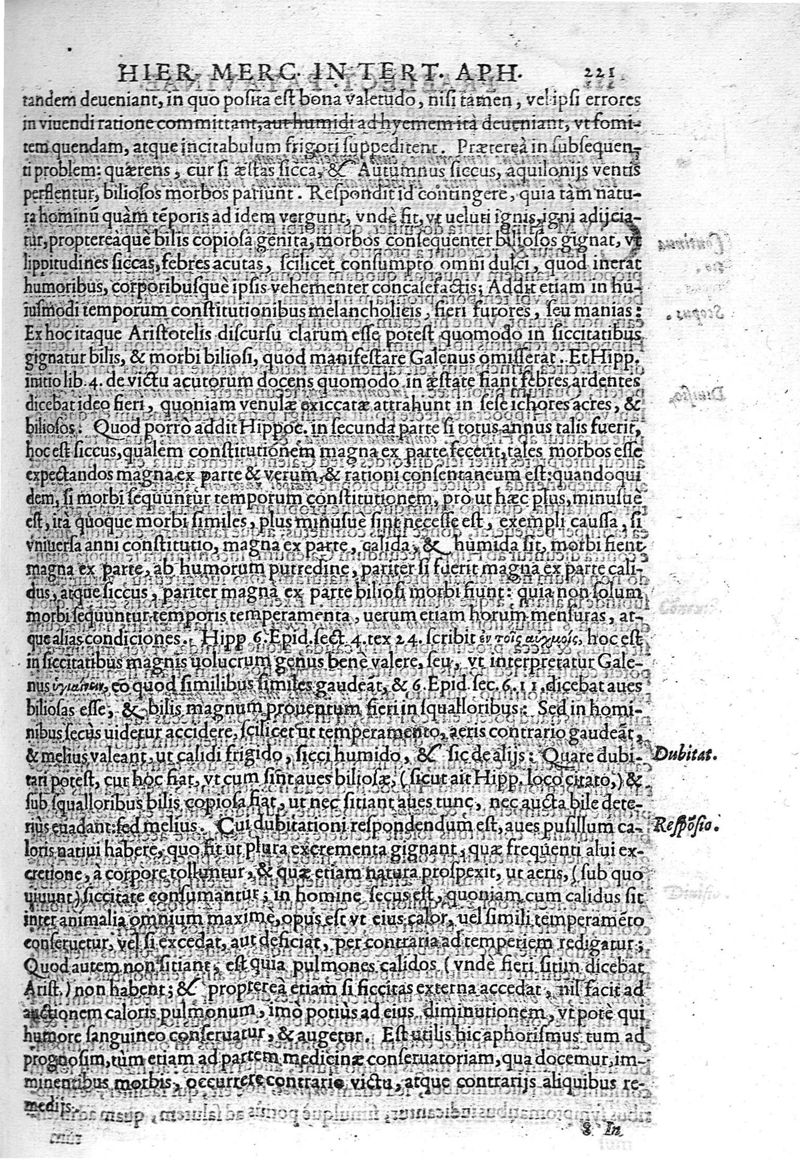 HIER. MERC. IN TERT. APH. 221
tandem deueniant, in quo posita est bona valetudo, nisi tamen, vel ipsi errores
in viuendi ratione committant, aut humidi ad hyemem ità deueniant, vt fomi-
tem quendam, atque incitabulum frigori suppeditent. Prætereà in subsequen-
ti problem: quærens, cur si æstas sicca, & Autumnus siccus, aquilonijs ventis
perflentur, biliosos morbos pariunt. Respondit id contingere, quia tàm natu-
ra hominũ quàm tẽporis ad idem vergunt, vndè fit, vt ueluti ignis, igni adijcia-
tur, proptereàque bilis copiosa genita, morbos consequenter biliosos gignat, vt
lippitudines siccas, febres acutas, scilicet consumpto omni dulci, quod inerat
humoribus, corporibusque ipsis vehementer concalefactis; Addit etiam in hu-
iusmodi temporum constitutionibus melancholicis, fieri furores, seu manias:
Ex hoc itaque Aristotelis discursu clarum esse potest quomodo in siccitatibus
gignatur bilis, & morbi biliosi, quod manifestare Galenus omisserat. Et Hipp.
initio lib. 4. de victu acutorum docens quomodo in æstate fiant febres ardentes
dicebat ideo fieri, quoniam venulæ exiccatæ attrahunt in sese ichores acres, &
biliosos: Quod porrò addit Hippoc. in secunda parte si totus annus talis fuerit,
hoc est siccus, qualem constitutionem magna ex parte fecerit, tales morbos esse
expectandos magna ex parte & verum, & rationi consentaneum est: quandoqui
dem, si morbi sequuntur temporum constitutionem, pro ut hæc plus, minusuè
est, ità quoque morbi similes, plus minusuè sint necesse est, exempli caussa, si
vniuersa anni constitutio, magna ex parte, calida, & humida sit, morbi fient
magna ex parte, ab humorum putredine, pariter si fuerit magna ex parte cali-
dus, atque siccus, pariter magna ex parte biliosi morbi fiunt: quia non solum
morbi sequuntur temporis temperamenta, uerum etiam horum mensuras, at-
que alias condiciones. Hipp 6. Epid. sect. 4. tex 24. scribit ἐν τοῖς αυχμοῖς, hoc est
in siccitatibus magnis uolucrum genus benè valere, seu, vt interpretatur Gale-
nus eò quod similibus similes gaudeãt, & 6. Epid. sec. 6. 11. dicebat aues
biliosas esse, & bilis magnum prouentum fieri in squalloribus: Sed in homi-
nibus secùs uidetur accidere, scilicet ut temperamento, aeris contrario gaudeãt,
& melius valeant, ut calidi frigido, sicci humido, & sic de alijs: Quare dubi- Dubitat.
tari potest, cur hoc fiat, vt cum sint aues biliosæ, (sicut ait Hipp. loco citato,) &
sub squalloribus bilis copiosa fiat, ut nec sitiant aues tunc, nec aucta bile dete-
rius euadant: sed melius. Cui dubitationi respondendum est, aues pusillum ca- Respõsio.
loris natiui habere, quo fit ut plura excrementa gignant, quæ frequenti alui ex-
cretione, à corpore tolluntur, & quæ etiam natura prospexit, ut aeris, (sub quo
uiuunt) siccitate consumantur; in homine secus est, quoniam cum calidus sit
inter animalia omnium maximè, opus est vt eius calor, uel simili temperamẽto
conseruetur, vel si excedat, aut deficiat, per contraria ad temperiem redigatur;
Quod autem non sitiant; est quia pulmones calidos (vndè fieri sitim dicebat
Arist.) non habent; & propterea etiam si siccitas externa accedat, nil facit ad
auctionem caloris pulmonum, imò potius ad eius diminutionem, vt potè qui
humore sanguineo conseruatur, & augetur. Est utilis hic aphorismus tum ad
prognosim, tùm etiam ad partem medicinæ conseruatoriam, qua docemur, im-
minentibus morbis, occurrere contrario victu, atque contrarijs aliquibus re-
medijs.
8 In